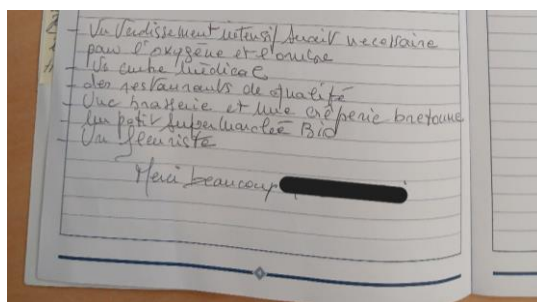 - Un Verdissement intensif serait necessaire
pour l'oxygène et l'ombre
- Un centre médical
- des restaurants de qualité
- Une brasserie et une crêperie bretonne
- Un petit supermarché Bio
- Un fleuriste
Merci beaucoup